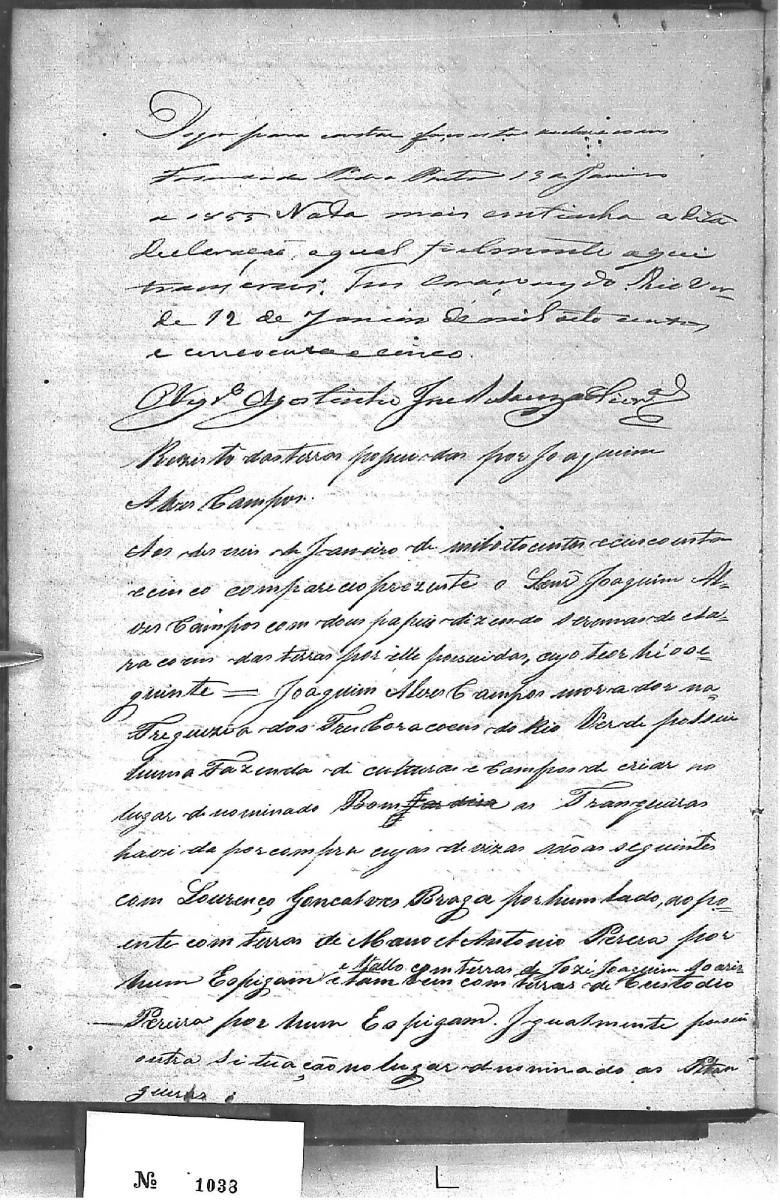 Digo para constar faço esta
Fazenda da Pedra Preta 13 de Janeiro
de 1855 Nada mais continha a dita
declaração, aqual fielmente aqui
transcrevi. Tres Coraçoens do Rio Ver-
de 12 de Janeiro de mil oito centos,
e cincoenta e cinco.
O Vigr.º Agostinho José de Souza
Rezisto das terras possuidas por Joaquim
Alves Campos.
Aos deseseis de Janeiro de mil oito centos e cincoenta
e cinco compareceo prezente o Senr. Joaquim Al-
ves Campos com dous papeis dizendo serem as decla-
racoens das terras por elle possuidas, cujo teor hé o se-
guinte = Joaquim Alves Campos morador na
Freguezia dos Tres Coracoens do Rio Verde possui
huma Fazenda de culturas e Campos de criar no
lugar denominado Bom as Tranqueiras
havida por compra cujas devizas são as seguintes
com Lourenço Goncalves Braga por hum lado, ao po-
ente com terras de Manoel Antonio Pereira por
hum Espigam e Vallo com terras de Jozé Joaquim Soares
e tambem com terras de Custodio
Pereira por hum Espigam. Igualmente possui
outra situação no lugar denominado as Pitan
gueiras
Nº 1033